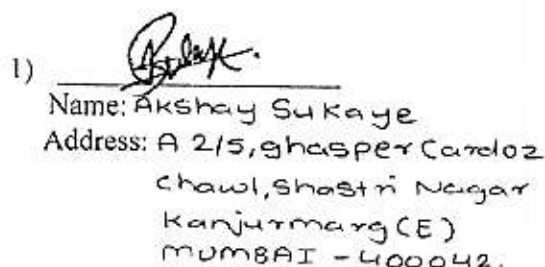 1)
Name: Akshay Sukaye
Address: A 2/5, ghasper Cardoz
chawl, Shastri Nagar
Kanjurmarg (E)
MUMBAI - 400042.